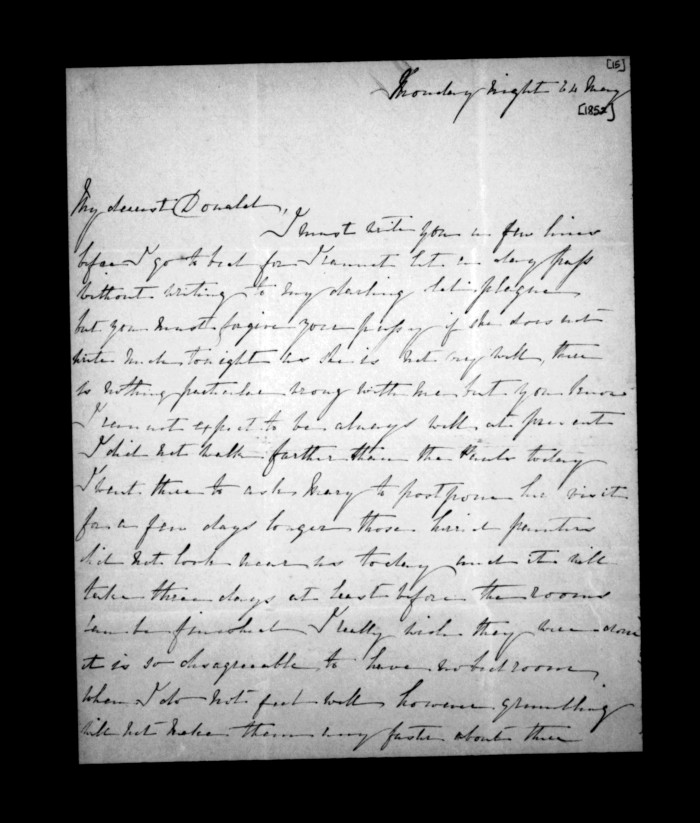 [15]
Monday night 24 May
[1852]
My dearest Donald,
I must write you a few lines
before I go to bed for I cannot let a day pass
without writing to my darling let plague
but you must forgive your pussy if she does not
write much tonight as she is not very well, there
is nothing particular wrong with me but you know
I cannot expect to be always well at present
I did not walk farther than the today
I went there to ask Mary to postpone her visit
for a few days longer those painters
did not look near us today and it will
take three days at least before the rooms
can be finished I really wish they were done
it is so disagreeable to have no bedroom
when I do not feel well however grumbling
will not make them any faster about their